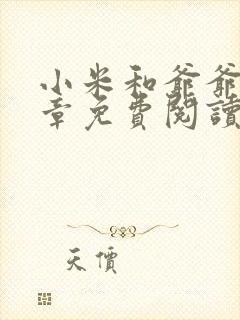 小米和爺爺
章免費閱讀
天價